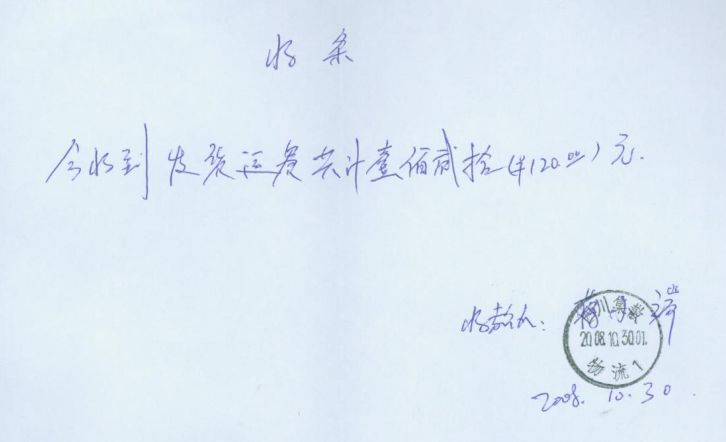 收条
今收到发货运费共计壹佰贰拾(¥120.00)元.
收款人:
川集散
2008.10.30.01.
物流1
2008.10.30